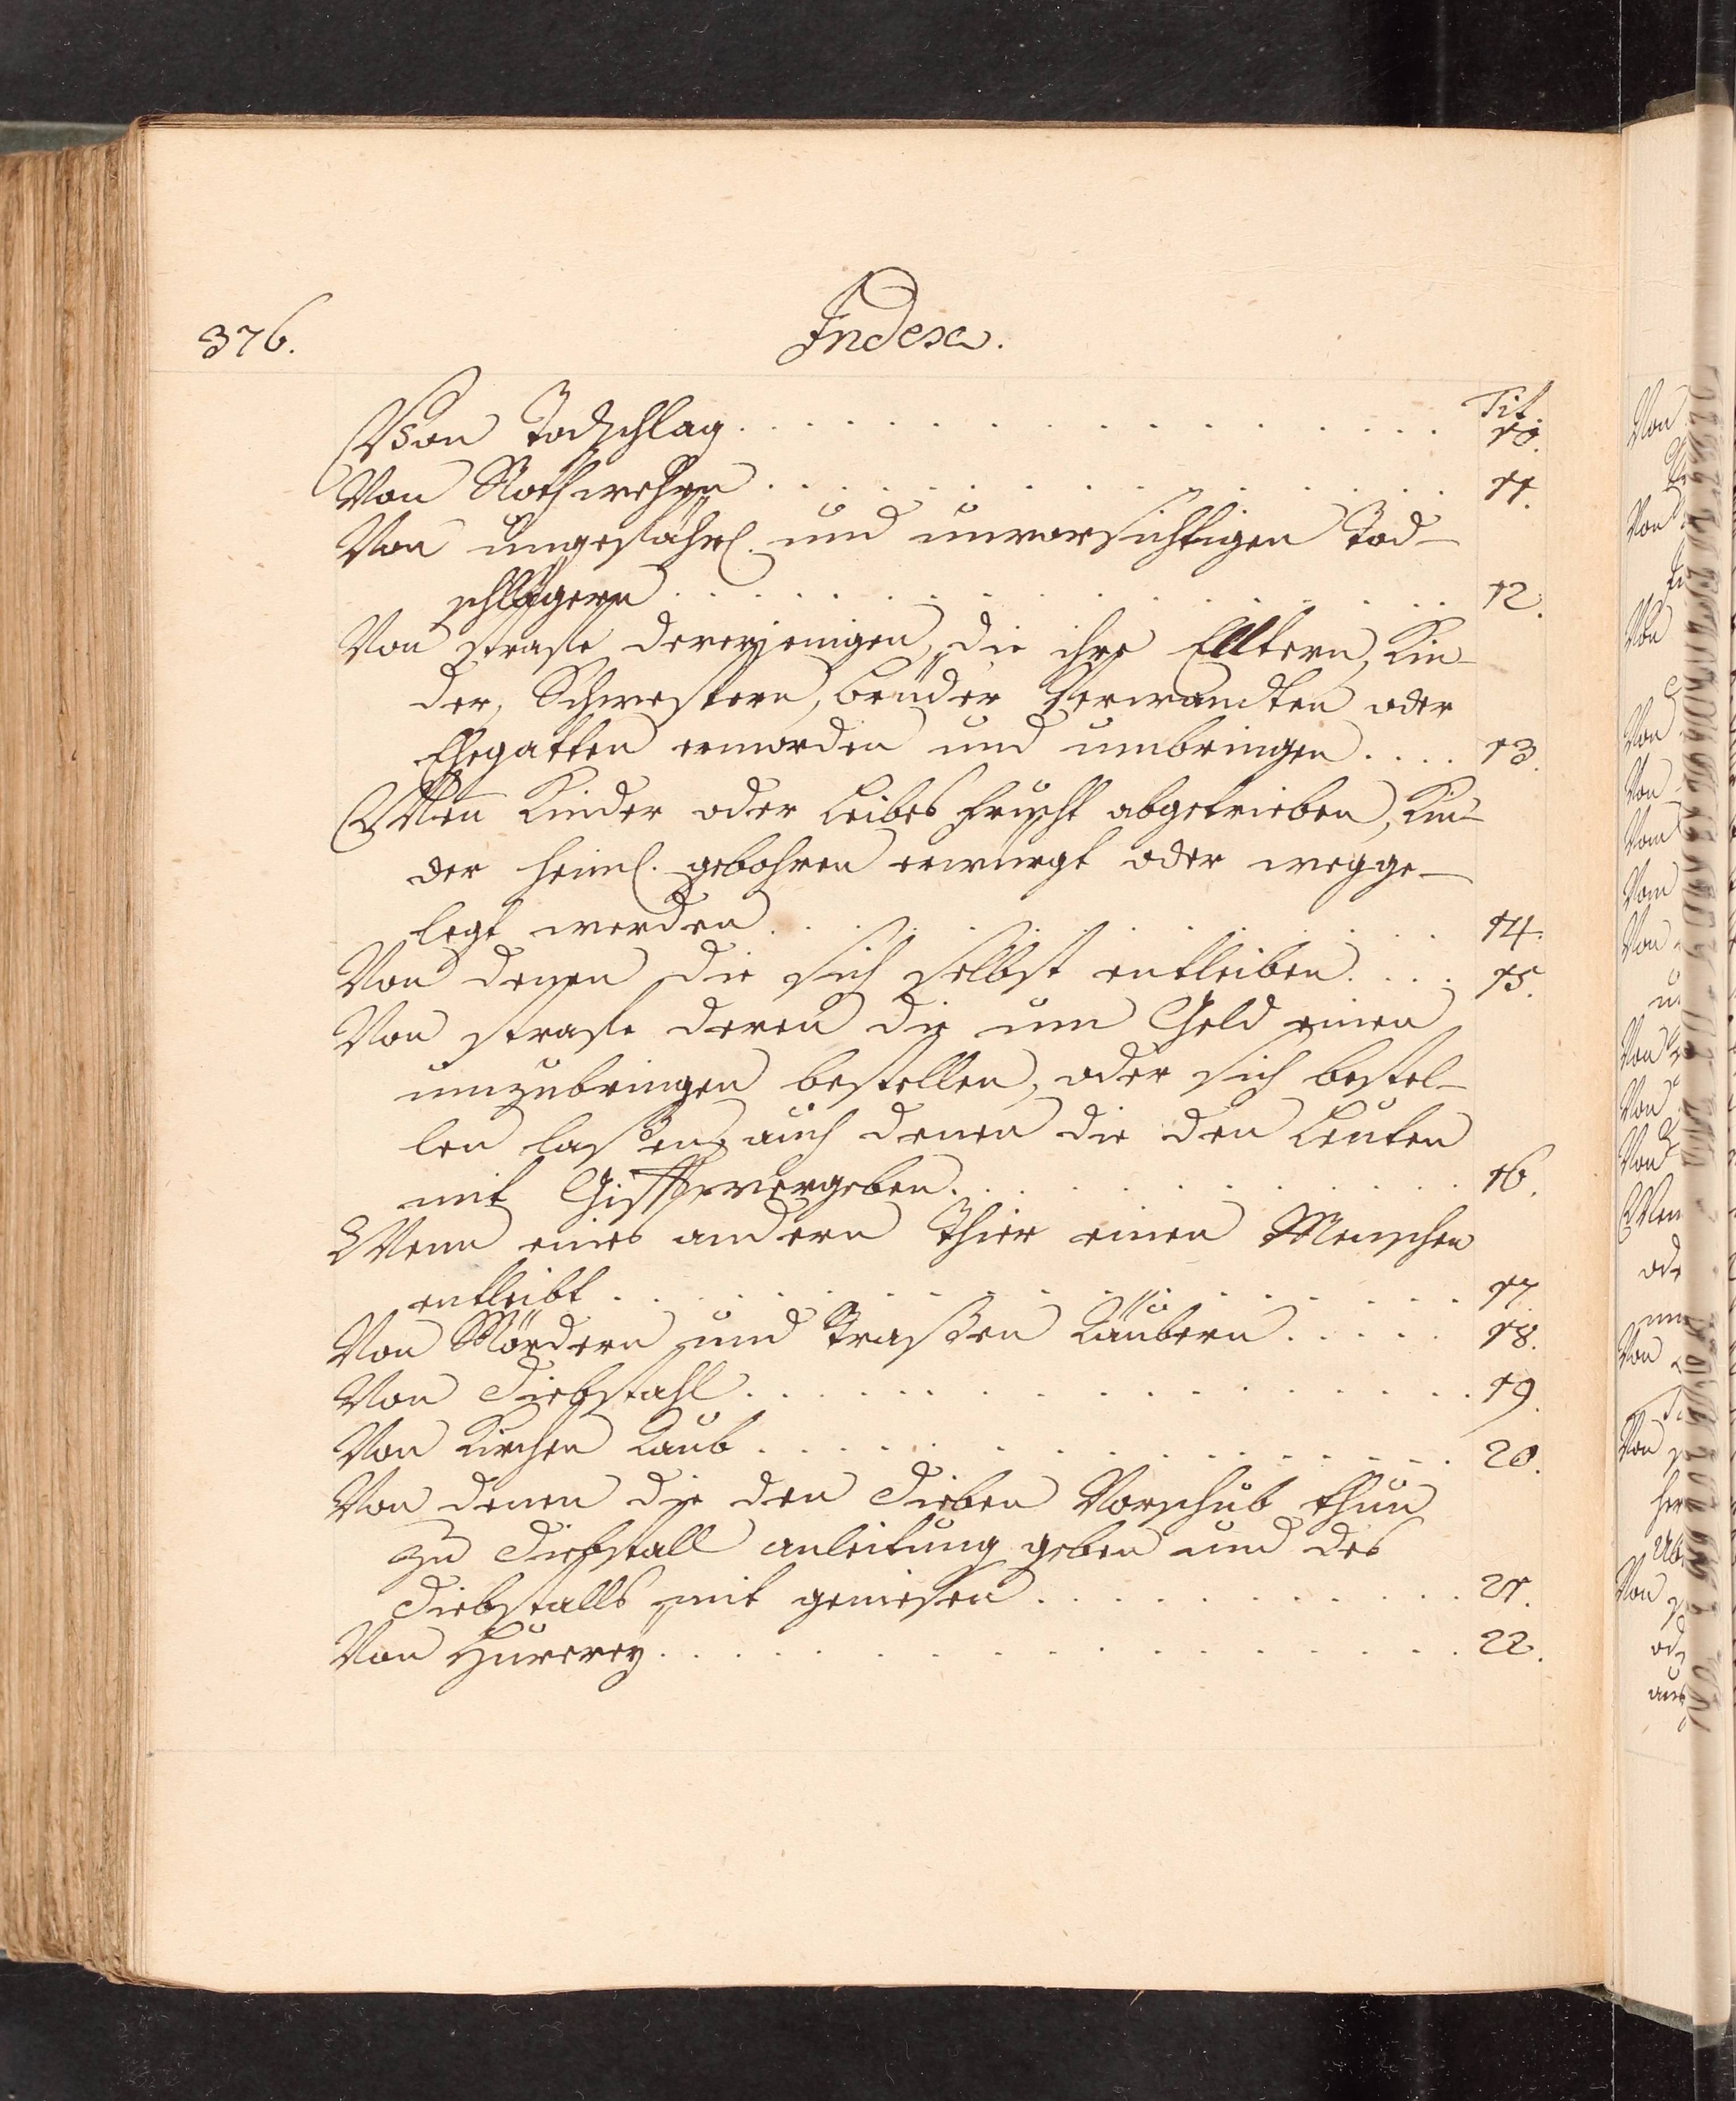 376.
Index.
Tit.
Von Todschlag. . . . . . . . . . . . . . . 10.
Von Nothwehren . . . . . . . . . . . . . . 11.
Von ungefährl. und unvorsichtigen Tod-
schlägern . . . . . . . . . . . . . . 12.
Von straffe dererjenigen, die ihre Elltern, Kin-
der, Schwestern, brüder Verwandten oder
Ehegatten ermorden und umbringen. . . . 13.
Wenn Kinder oder Leibes frucht abgetrieben, Kin-
der heiml. gebohren erwürgt oder wegge-
legt werden. . . . . . . . . . . . . 14.
Von denen die sich selbst entleiben. . . . 15.
Von straffe deren die um Geld einen
umzubringen bestellen, oder sich bestel-
len laßen, auch denen die den Leuten
mit Gifft vergeben. . . . . . . . . . . 16.
Wenn eines andern Thier einen Menschen
entleibt . . . . . . . . . . . . . . 17.
Von Mördern und Straßen Räubern. . . . . 18.
Von Diebstahl. . . . . . . . . . . . . . 19.
Von Kirchen Raub . . . . . . . . . . . . . 20.
Von denen die den Dieben Vorschub thun
zu Diebstall anleitung geben und des
Diebstalls mit geniesen . . . . . . . . . 21.
Von Hurerey. . . . . . . . . . . . . . . 22.